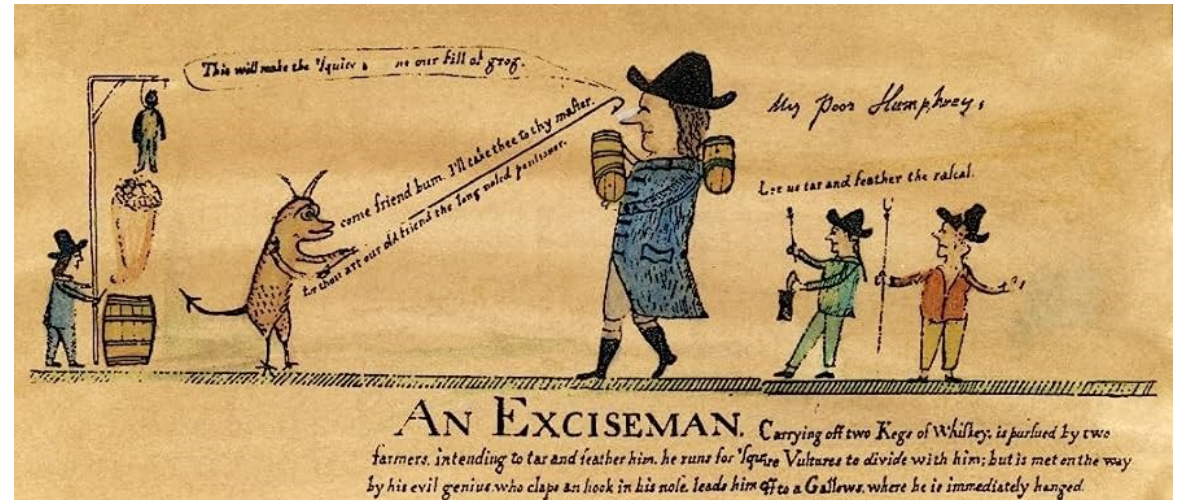 This will make the 'Squire, our fill of grog.
come friend bum. I'll take thee to thy master.
for thou art our old friend the long nosed
My Poor Humphrey,
Let us tar and feather the rascal.
AN EXCISEMAN. Carrying off two Kegs of Whiskey, is pursued by two
farmers, intending to tar and feather him, he runs for 'Squire Vultures to divide with him; but is met on the way
by his evil genius who claps an hook in his nose, leads him off to a Gallows, where he is immediately hanged